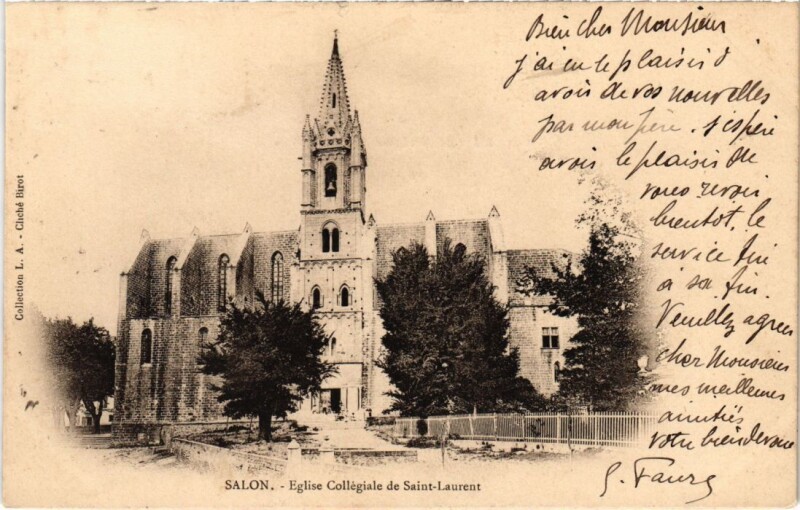 Bien cher Monsieur
j'ai eu le plaisir d
avoir de vos nouvelles
par mon frère. J'espère
avoir le plaisir de
vous revoir
bientôt. le
service tire
à sa fin.
Veuillez agréer
cher Monsieur
mes meilleures
amitiés
votre bien dévoué
G. Faure
Collection L. A. - Cliché Birot
SALON. - Eglise Collégiale de Saint-Laurent